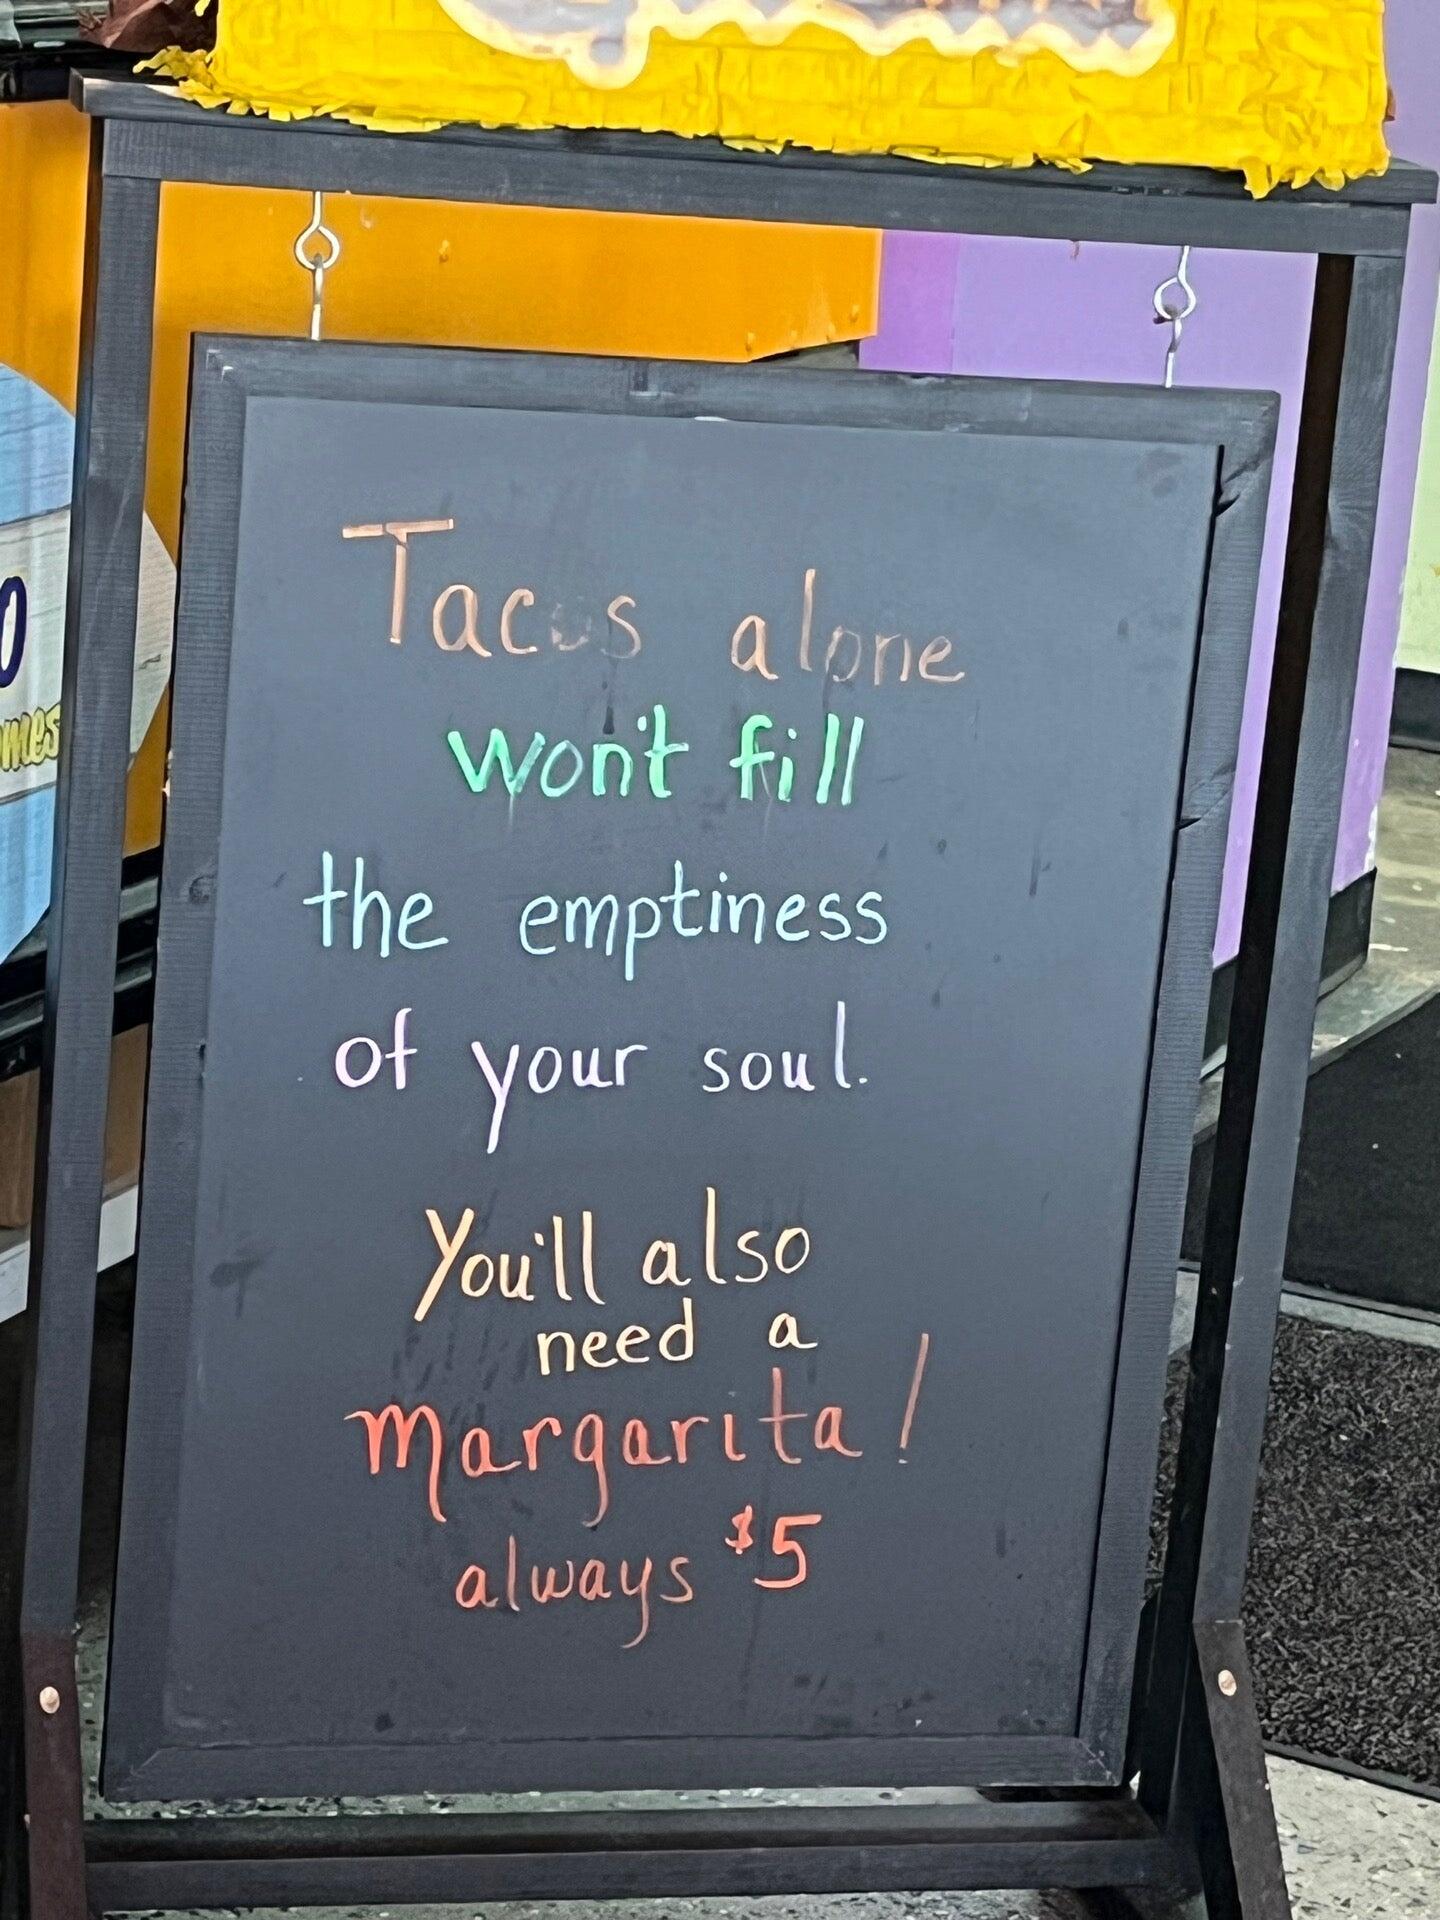 Tacos alone
won't fill
the emptiness
of your soul.
You'll also
need a
margarita!
always $5